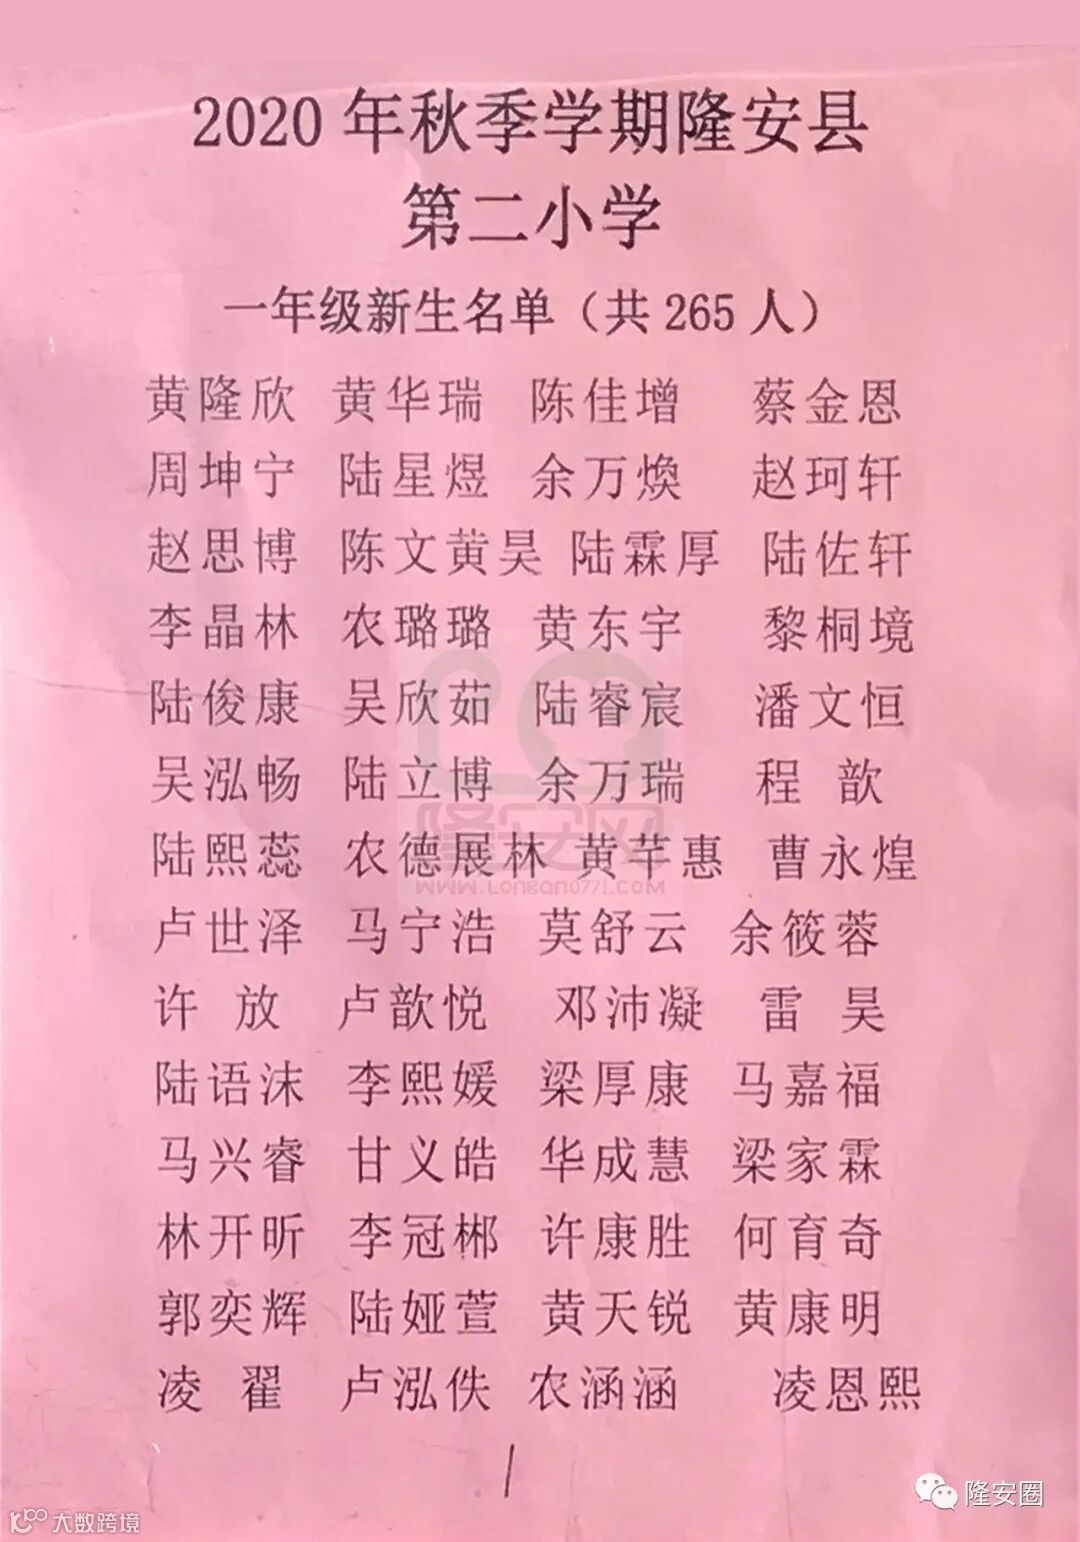 2020 年秋季学期隆安县
第二小学
一年级新生名单（共 265 人）
黄隆欣 黄华瑞 陈佳增 蔡金恩
周坤宁 陆星煜 余万焕 赵珂轩
赵思博 陈文黄昊 陆霖厚 陆佐轩
李晶林 农璐璐 黄东宇 黎桐境
陆俊康 吴欣茹 陆睿宸 潘文恒
吴泓畅 陆立博 余万瑞 程 歆
陆熙蕊 农德展林 黄芊惠 曹永煌
卢世泽 马宁浩 莫舒云 余筱蓉
许 放 卢歆悦 邓沛凝 雷 昊
陆语沫 李熙媛 梁厚康 马嘉福
马兴睿 甘义皓 华成慧 梁家霖
林开昕 李冠郴 许康胜 何育奇
郭奕辉 陆娅萱 黄天锐 黄康明
凌 翟 卢泓佚 农涵涵 凌恩熙
1
隆安网
WWW.LONGAN0771.COM
隆安圈
大数跨境